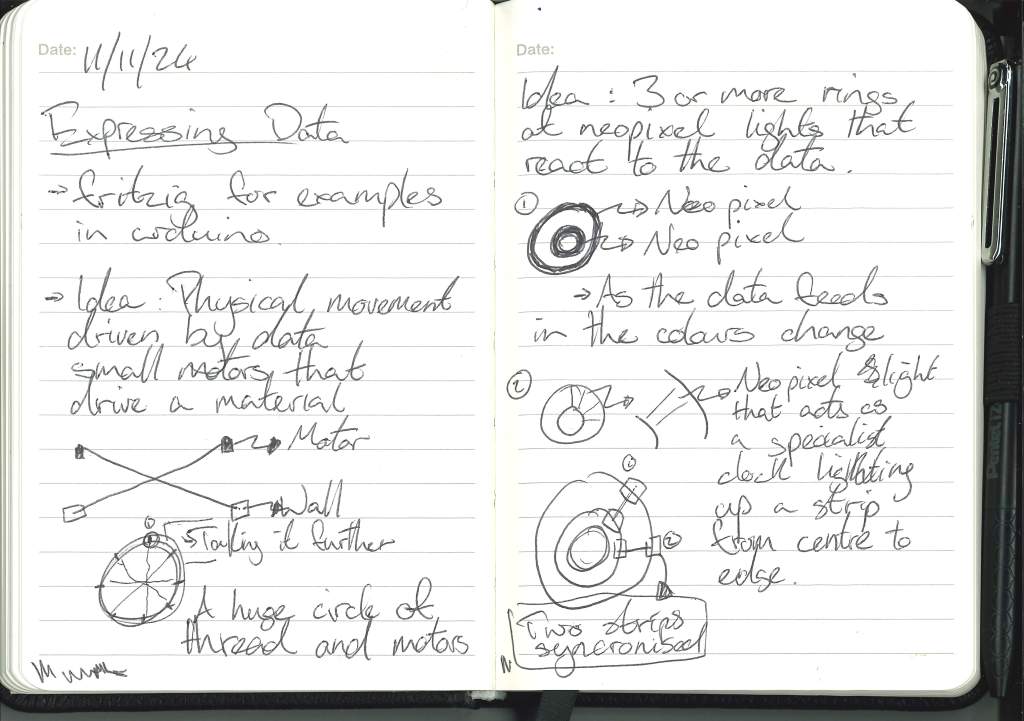 Date: 11/11/24
Expressing Data
→ fritzig for examples
in arduino.
→ Idea : Physical movement
driven by data
small motors that
drive a material
→ Motor
→ Wall
①
→ Taking it further
A huge circle of
thread and motors
Date:
Idea : 3 or more rings
of neopixel lights that
react to the data.
① → Neo pixel
→ Neo pixel
→ As the data feeds
in the colours change
② → Neo pixel light
that acts as
a specialist
clock lighting
up a strip
from centre to
edge.
①
②
Two strips
syncronised